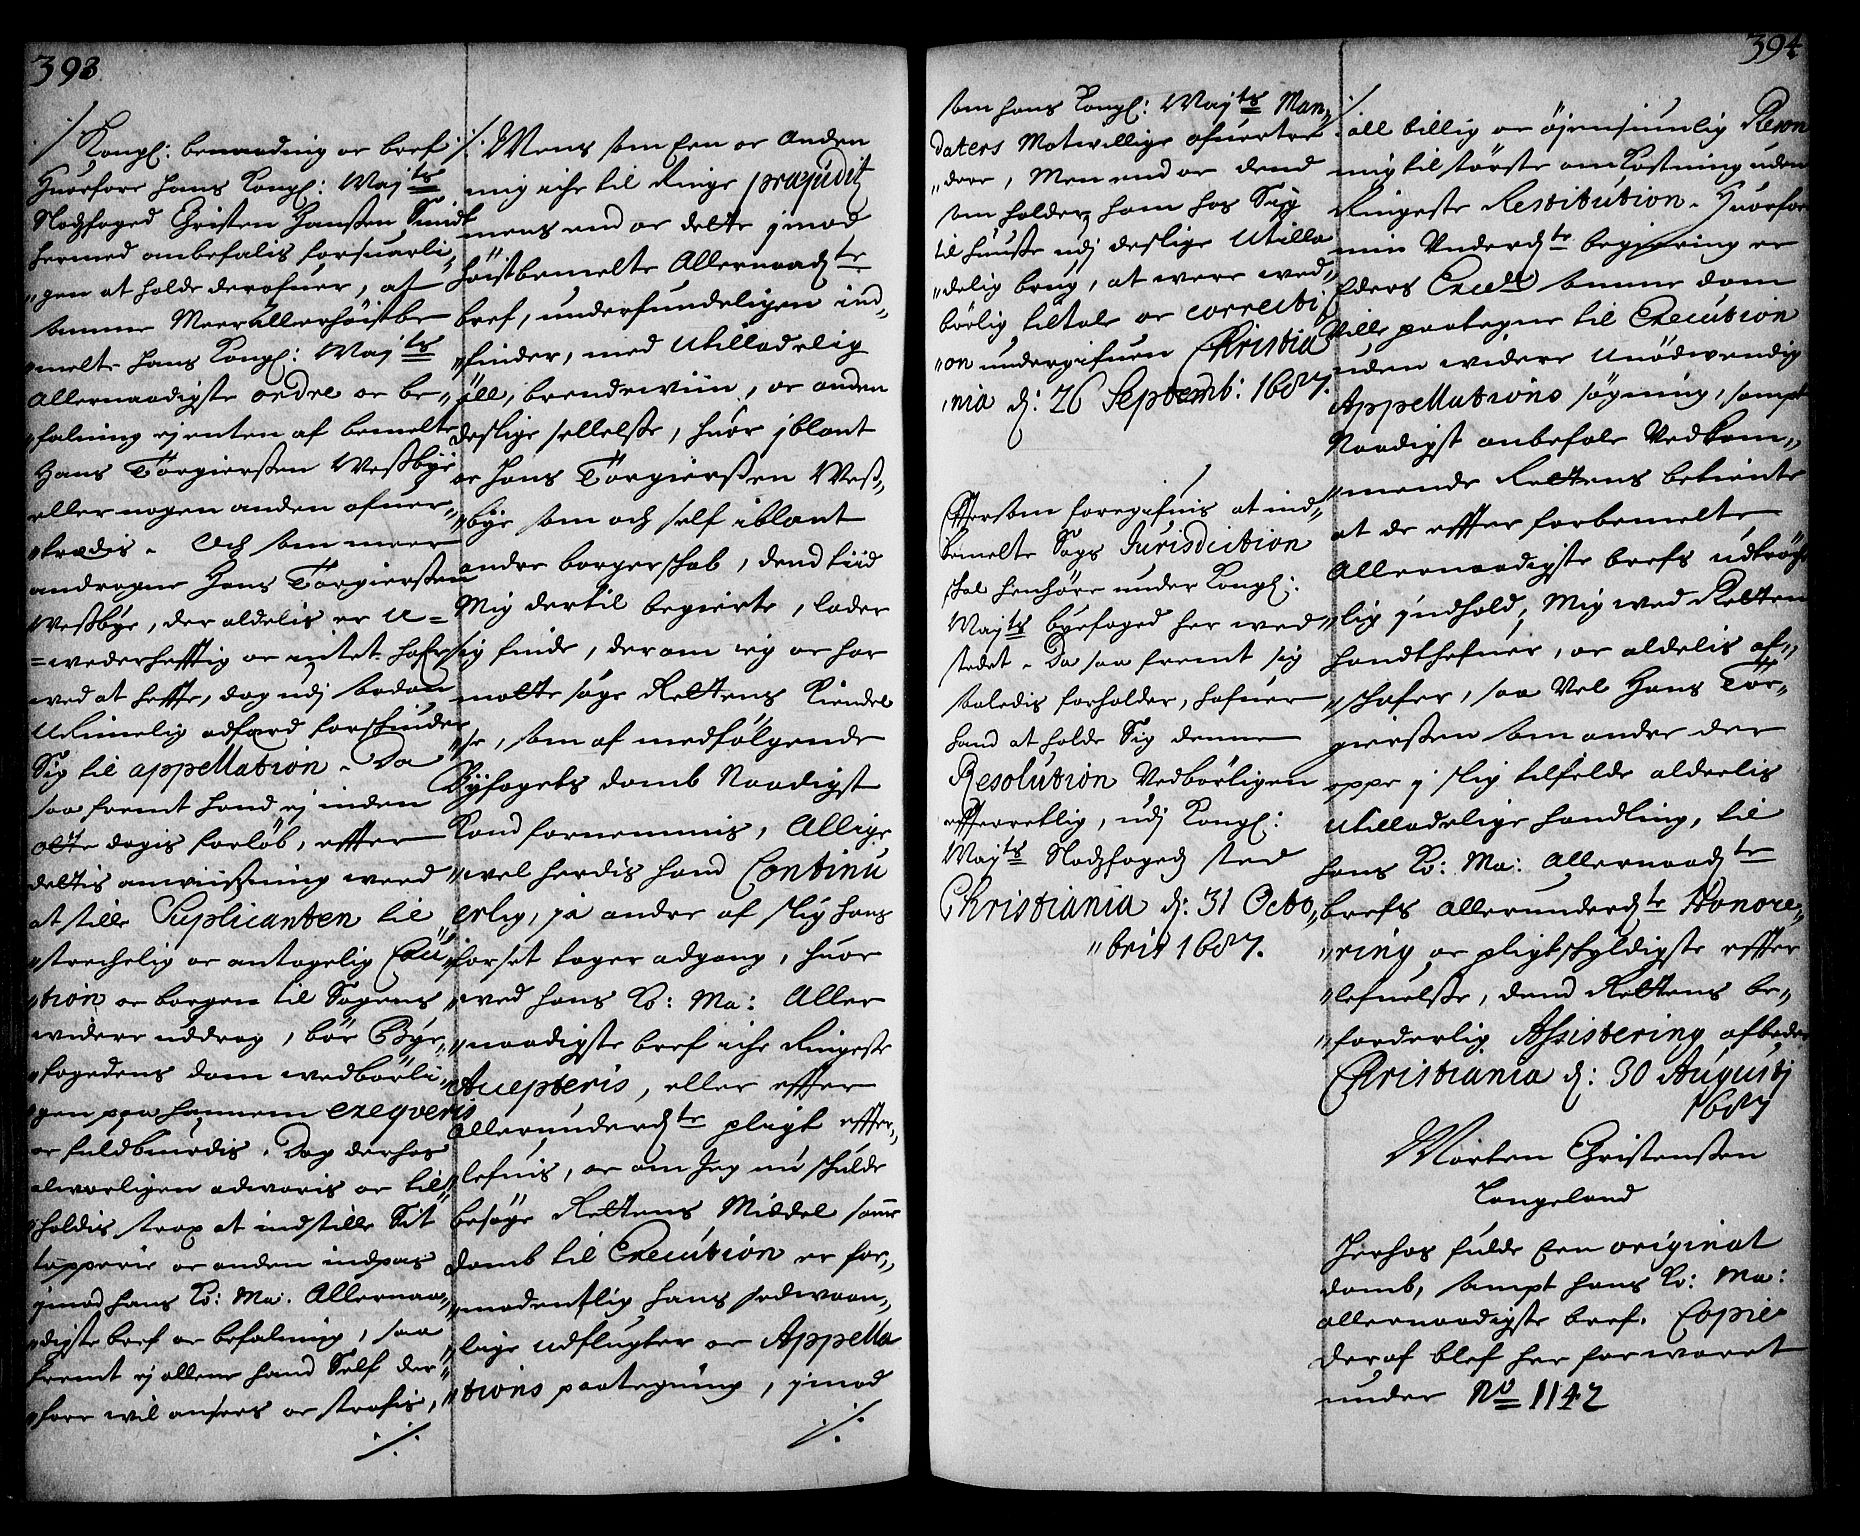 393
Kongl: benaading oc bref
Huorfore hans Kongl: Maj:ts
Slodtzfoged Christen Hanßen Smidt
hermed anbefalis forsuarli-
gen at holde derofuer, at
samme Meer allerhöistbe
melte hans Kongl: Maj:ts
Allernaadigste ordre oc be-
falning ej enten af bemelte
Hans Törgierßen Weßbye
eller nogen anden ofuer-
trædis. Och som meer
andragne Hans Torgierßen
Weßbye, der aldelis er U-
wederhefftig oc intet hafer
wed at heffte, dog udj sadan
Urimelig adfærd forskiuder
Sig til appellation. Da
saa fremt hand ej inden
otte dagis forlöb, effter
dettis anwiißning weed
at stille Suplicanten til
strechelig oc antagelig Cau
tion oc borgen til Sagens
widere uddrag, bör Bye-
fogedens dom wedbörli-
gen paa hannem exeqveris
oc fuldbiurdis. Dog derhos
alworligen adwaris oc til
holdis strax at indstille Sit
tapperie oc anden indpas
jmod hans Ko: Ma: Allernaa-
digste bref oc befalning, saa
fremt ej allene hand Self der
fore wil ansees oc straffis,
Mens som Een oc Anden
mig iche til Ringe præjuditz
mens end oc dette jmod
höistbemelte Allernaad:te
bref, underfundeligen ind-
finder, med Utilladelig
öll, brendewiin, oc anden
deslige sellelße, huor jblant
oc Hans Törgierßen Weß-
bye som och self iblant
andre borgerskab, dend tiid
Mig dertil begierte, lader
sig finde, derom jeg oc har
motte söge Rettens Kiendel
se, som af medfölgende
Byfogets domb Naadigst
Kand fornemmis, Allige
wel herdis hand Continu
erlig, ja andre af slig hans
forset tager adgang, huor
wed hans Ko: Ma: Aller
naadigste bref iche Ringeste
Accepteris, eller effter
allerunderd:te pligt effter-
lefuis, oc om Jeg nu skulde
besöge Rettens Middel samme
domb til Execution er for-
modentlig hans sedwaan-
lige udflugter oc Appella
tions paategning, jmod
394
som hans Kongl: Maj:ts Man-
daters Motwillige ofuertræ
dere, Men end oc dend
som holder ham hos Sig
til huuße udj deslige Utilla
delig brug, at were wed-
börlig tiltale oc correcti
on undergifuen Christia
nia d: 26 Septemb: 1687.
Efftersom foregifuis at ind-
bemelte Sags Jurisdiction
skal henhöre under Kongl:
Maj:ts byefoged her wed
stedet. Da saa fremt sig
saaledis forholder, hafuer
hand at holde Sig denne
Resolution Vedbörligen
effterretlig, udj Kongl:
Maj:ts Slodtzfogedz sted
Christiania d: 31 Octo-
bris 1687.
all billig oc öjensiunlig Reson
mig til störste omkostning uden
Ringeste Restitution. Huorfore
min Underd:te begiering er
Eders Excell: samme dom
Ville paategne til Execution
uden widere Unödwendig
Appellations sögning, sampt
Naadigst anbefale Vedkom-
mende Rettens betiente
at de effter forbemelte
Allernaadigste brefs udtröche
lig jndhold, Mig wed Retten
handthefuer, oc aldelis af-
skafer, saa Vel Hans Tör-
gierßen som andre der
oppe j slig tilfelde alderlis
Utilladelige handling, til
hans Ko: Ma: Allernaad:te
brefs allerunderd:te Honore-
ring oc pligtskyldigste effter
lefuelße, dend Rettens be-
forderlig Assistering afbeder
Christiania d: 30 Augustj
1687
Morten Christenßen
Langeland
Herhos fulde Een original
domb, sampt hans Ko: Ma:
allernaadigste bref. Copie
deraf blef her forwaret
under No 1142